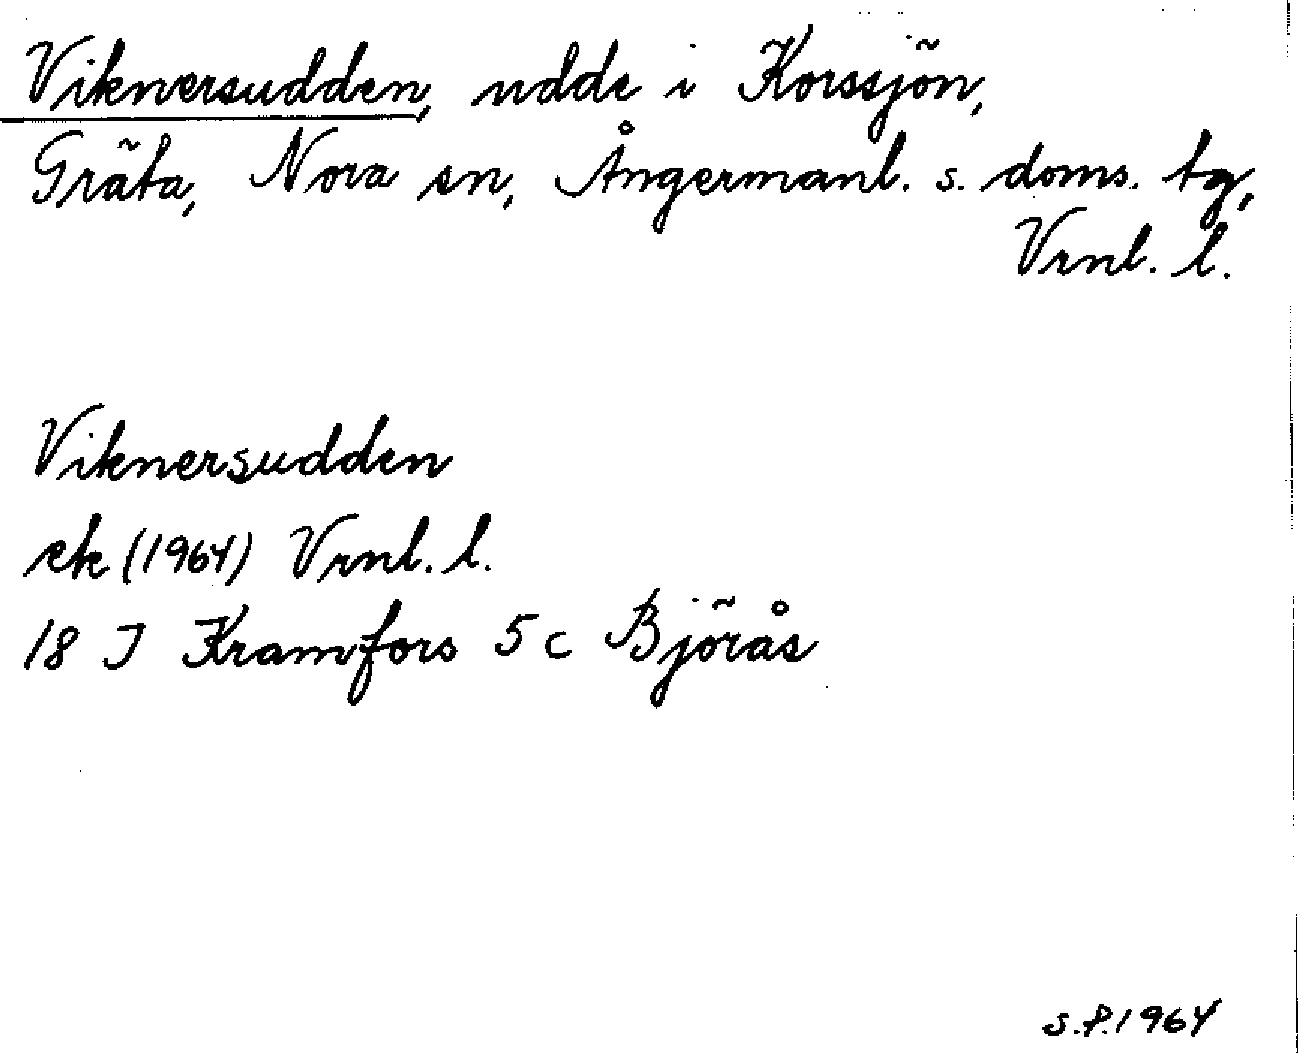 Viknersudden, udde i Korssjön,
Gräta, Nora sn, Ångermanl. s. doms. tg,
Vrnl. l.
Viknersudden
ek (1964) Vrnl. l.
18 J Kramfors 5 c Björås
S.P.1964